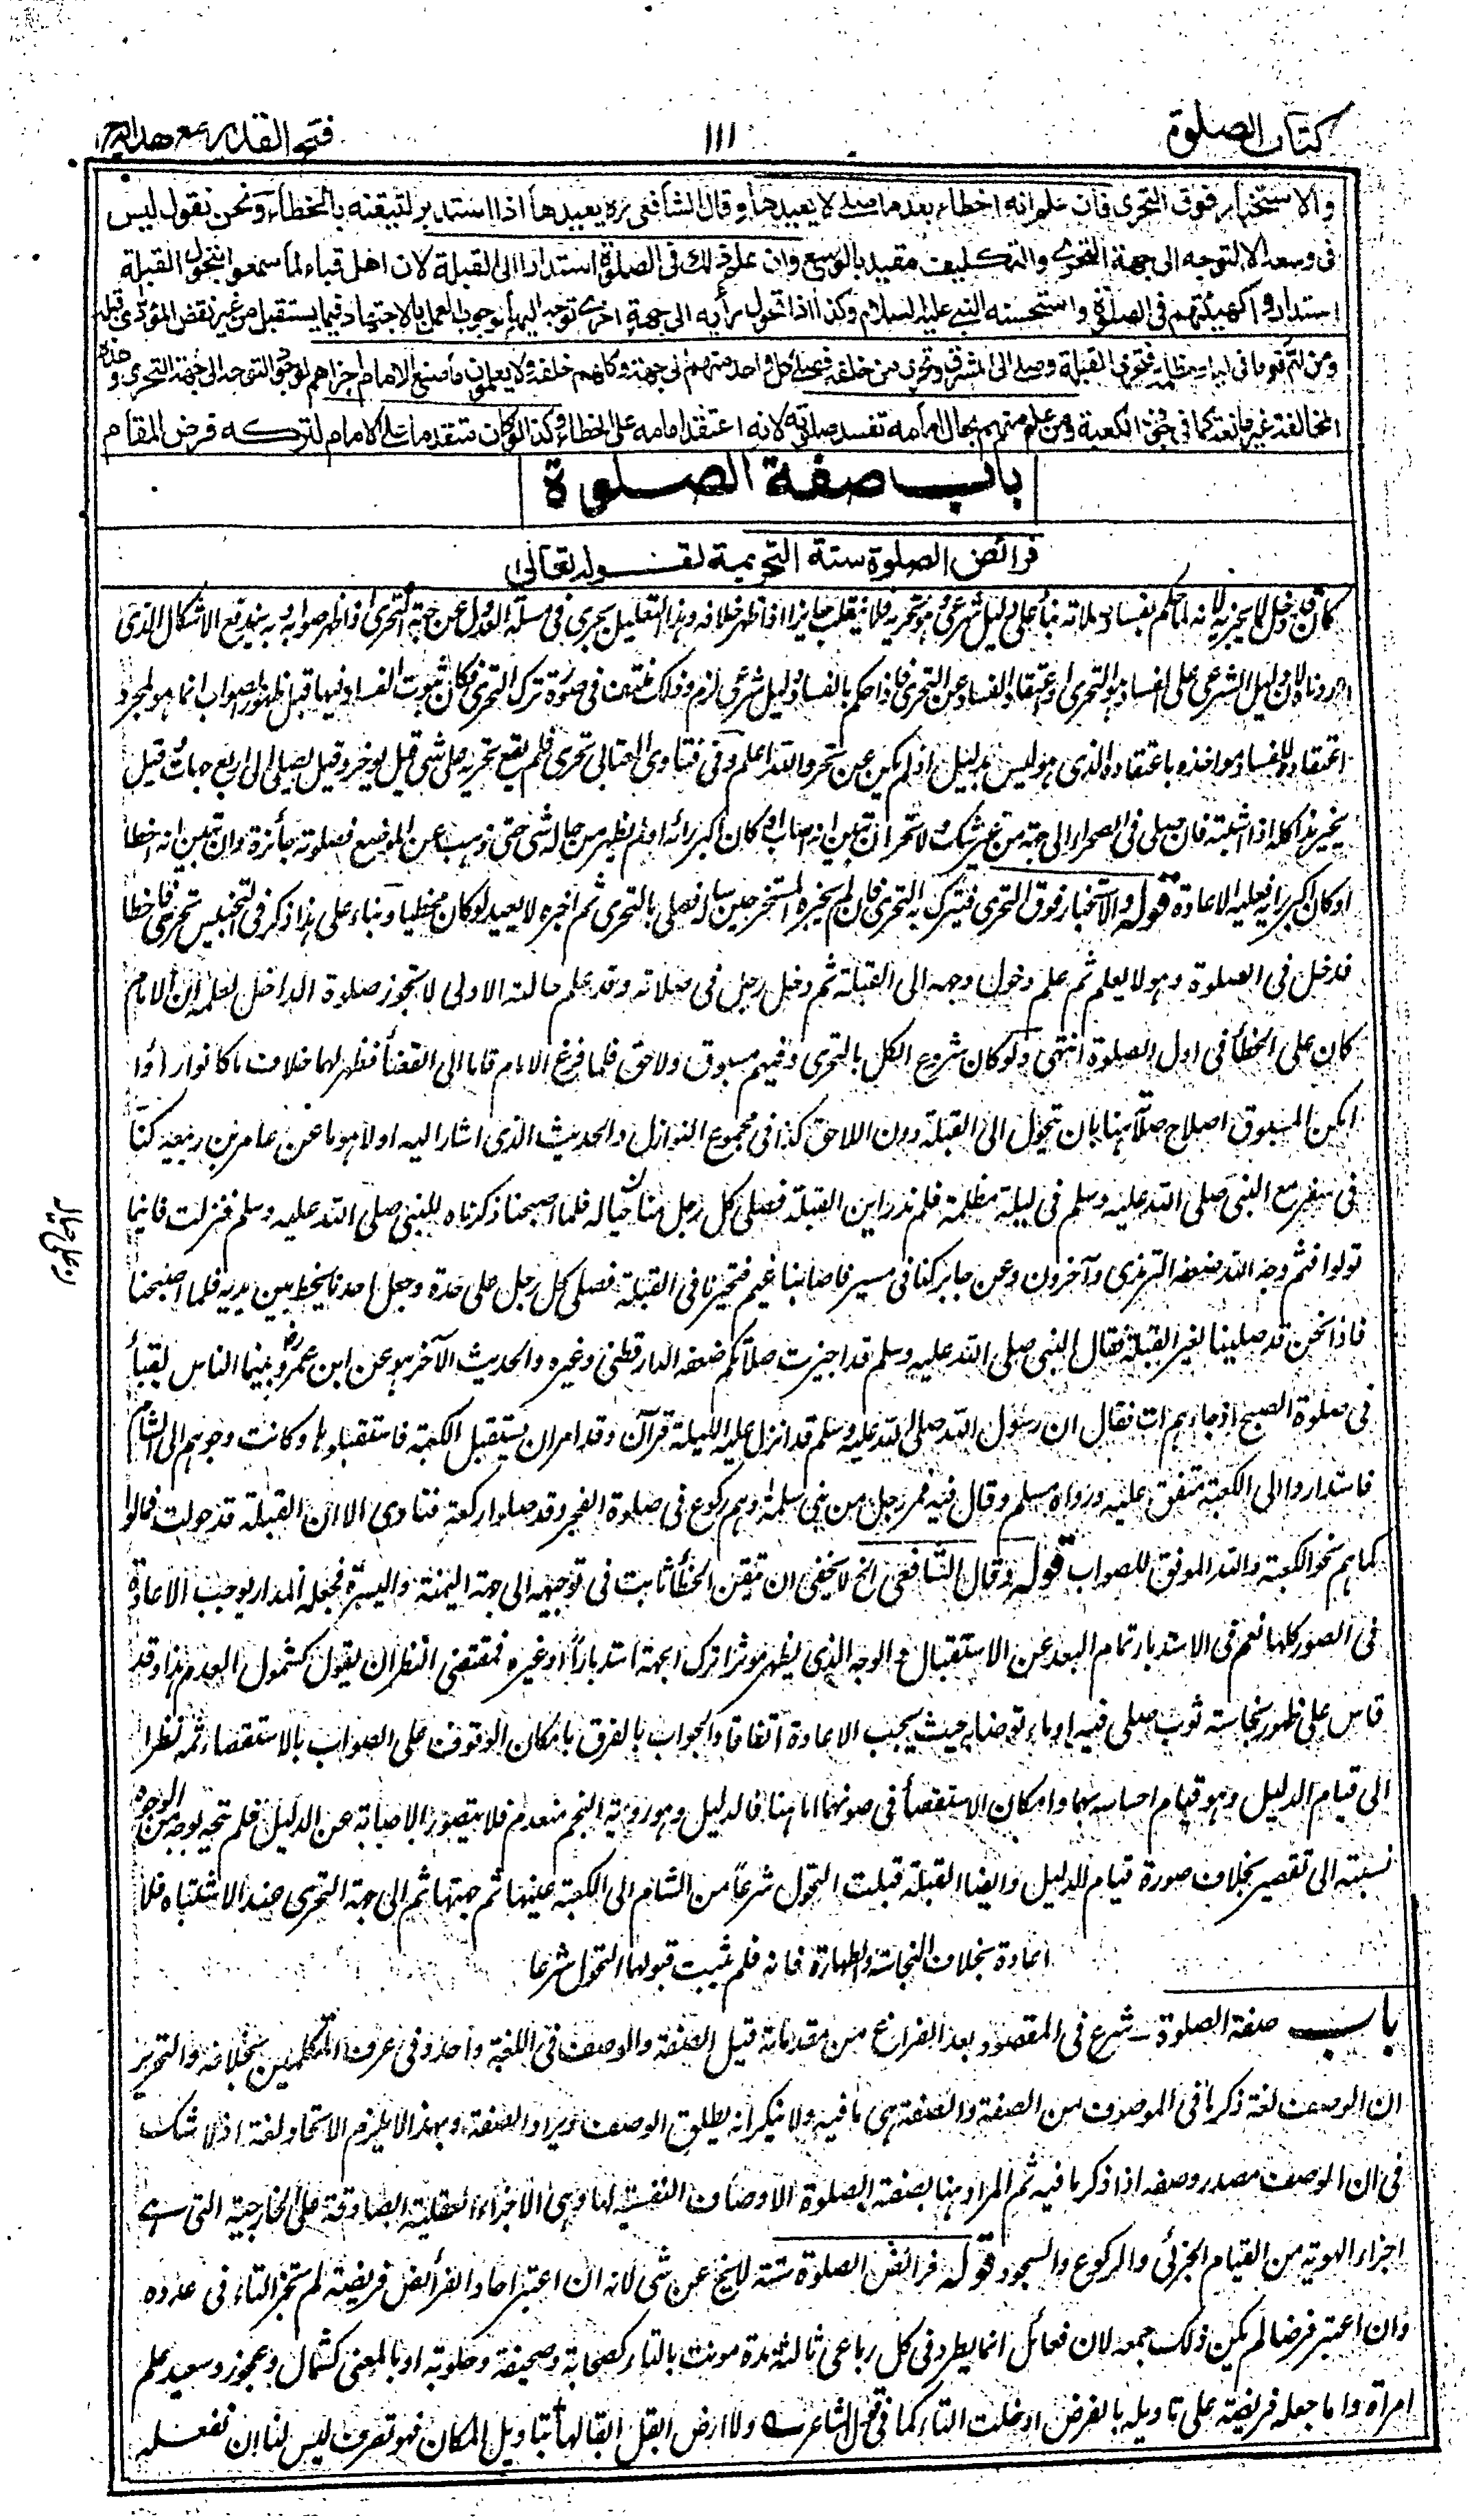 كتاب الصلوة
١١١
فتح القدير مع هدايه ج ١
والاستخبار فوق التحرى فان علم انه اخطاء بعد ما صلى لا يعيدها وقال الشافعى رہ يعيدها اذا استدبر لتيقنه بالخطاء ونحن نقول ليس
فى وسعه الا التوجه الى جهة التحرى والتكليف مقيد بالوسع وان علم ذلك فى الصلوة استدار الى القبلة لان اهل قباء لما سمعوا بتحول القبلة
استداروا كهيئتهم فى الصلوة واستحسنه النبى عليه السلام وكذا اذا تحول رأيه الى جهة اخرى توجه اليها لوجوب العمل بالاجتهاد فيما يستقبل من غير نقض المؤدى قبله
ومن ام قوما فى ليلة مظلمة فتحرى القبلة وصلى الى المشرق وتحرى من خلفه فصلى كل واحد منهم الى جهة وكلهم خلفه ولا يعلمون ما صنع الامام اجزاهم لوجود التوجه الى جهة التحرى وهذه
المخالفة غير مانعة كما فى جوف الكعبة ومن علم منهم بحال امامه تفسد صلوته لانه اعتقد امامه على الخطاء وكذا لو كان متقدما على الامام لتركه فرض المقام
باب صفة الصلوة
فرائض الصلوة ستة التحريمة لقوله تعالى
لا يجزيه لانه لما حكم بفساد صلاته بناء على دليل شرعى وهو تحريه فلا ينقلب جايزا اذا ظهر خلافه وهذا التعليل يجرى فى مسألة العدول عن جهة التحرى اذا ظهر صوابه وبه يندفع الاشكال الذى
اوردناه لان الدليل الشرعى على الفساد هو التحرى او اعتقاد الفساد عن التحرى فاذا حكم بالفساد دليل شرعى لزم وذلك منتف فى صورة ترك التحرى فكان ثبوت الفساد فيها قبل ظهور الصواب انما هو لمجرد
اعتقاده الفساد مواخذه باعتقاده الذى هو ليس بدليل اذ لم يكن عن تحر والله اعلم وفى فتاوى العتابى تحرى فلم يقع تحريه على شى قيل يوخر وقيل يصلى الى اربع جهات وقيل
يخير هذا كله اذا اشتبه فان صلى فى الصحراء الى جهة من غير شك ولا تحر ان تبين انه اصاب او كان اكبر رائه او لم يظهر من حاله شى حتى ذهب عن الموضع فصلوته جائزة وان تبين انه اخطا
او كان اكبر رايه فعليه الاعادة قوله والاستخبار فوق التحرى فيترك به التحرى فان لم يخبره المستخبر حين ساله فصلى بالتحرى ثم اخبره لا يعيد لو كان مخطيا وبناء على هذا ذكر فى التجنيس تحرى فاخطا
فدخل فى الصلوة وهو لا يعلم ثم علم وحول وجهه الى القبلة ثم دخل رجل فى صلاته وقد علم حالته الاولى لا تجوز صلوة الداخل لعلمه ان الامام
كان على الخطأ فى اول الصلوة انتهى ولو كان شروع الكل بالتحرى وفيهم مسبوق ولاحق فلما فرغ الامام قاما الى القضأ فظهر لهما خلاف ما كانوا راوا
امكن المسبوق اصلاح صلاته بان يتحول الى القبلة دون اللاحق كذا فى مجموع النوازل والحديث الذى اشار اليه اولا هو ما عن عامر بن ربيعه كنا
فى سفر مع النبى صلى الله عليه وسلم فى ليلة مظلمة فلم ندر اين القبلة فصلى كل رجل منا على حياله فلما اصبحنا ذكرناه للنبى صلى الله عليه وسلم فنزلت فاينما
تولوا فثم وجه الله ضعفه الترمذى وآخرون وعن جابر كنا فى مسير فاصابنا غيم فتحيرنا فى القبلة فصلى كل رجل على حدة وجعل احدنا يخط بين يديه فلما اصبحنا
فاذا نحن قد صلينا لغير القبلة فقال النبى صلى الله عليه وسلم قد اجيزت صلاتكم ضعفه الدارقطنى وغيره والحديث الآخر هو عن ابن عمر رض وبينما الناس بقبأ
فى صلوة الصبح اذ جاءهم آت فقال ان رسول الله صلى الله عليه وسلم قد انزل عليه الليلة قرآن وقد امر ان يستقبل الكعبة فاستقبلوها وكانت وجوههم الى الشام
فاستداروا الى الكعبة متفق عليه ورواه مسلم وقال فيه فمر رجل من بنى سلمة وهم ركوع فى صلوة الفجر وقد صلوا ركعة فنادى الا ان القبلة قد حولت فمالوا
كما هم نحو الكعبة والله الموفق للصواب قوله وقال الشافعى الخ لا يخفى ان تيقن الخطأ ثابت فى توجيهه الى جهة اليمنة واليسرة فجعله المدار يوجب الاعادة
فى الصور كلها نعم فى الاستدبار تمام البعد عن الاستقبال و الوجه الذى يظهر موثرا ترك الجهة استدبارا او غيره فمقتضى النظر ان يقول كشمول العدم هذا وقد
قاس على ظهور نجاسة ثوب صلى فيه او ماء توضا به حيث يجب الاعادة اتفاقا والجواب بالفرق بامكان الوقوف على الصواب بالاستقصاء ثمه نظرا
الى قيام الدليل وهو قيام احساسه بهما وامكان الاستقصأ فى صونهما اما هنا فالدليل وهو روية النجم منعدم فلا يتصور الاصابة عن الدليل فلم يتجه بوجه من الوجوه
نسبته الى تقصير بخلاف صورة قيام الدليل وايضا القبلة قبلت التحول شرعا من الشام الى الكعبة عينها ثم جهتها ثم الى جهة التحرى عند الاشتباه فلا
اعادة بخلاف النجاسة والطهارة فانه فلم يثبت قبولهما التحول شرعا
باب صفة الصلوة شرع فى المقصود بعد الفراغ من مقدماته قيل الصفة والوصف فى اللغة واحد وفى عرف المتكلمين بخلافه والتحرير
ان الوصف لغة ذكر ما فى الموصوف من الصفة والصفة هى ما فيه ولا ينكر انه يطلق الوصف ويراد الصفة وبهذا لا يلزم الاتحاد لغة اذ لا شك
فى ان الوصف مصدر وصفه اذا ذكر ما فيه ثم المراد هنا بصفة الصلوة الاوصاف النفسية لها وهى الاجزاء العقلية الصادقة على الخارجية التى هى
اجزاء الهوية من القيام الجزئى والركوع والسجود قوله فرائض الصلوة ستة لا يخ عن شى لانه ان اعتبر احاد الفرائض فريضة لم تجز التاء فى عدده
وان اعتبر فرضا لم يكن ذلك جمعه لان فعائل انما يطرد فى كل رباعى ثالثه مدة مونث بالتاء كصحابة وصحيفة وحلوبة او بالمعنى كشمال وعجوز وسعيد علم
امراة واما جعله فريضة على تاويله بالفرض ادخلت التاء كما فى قول الشاعر ولا ارض ابقل ابقالها بتاويل المكان فهو تصرف ليس لنا ان نفعله